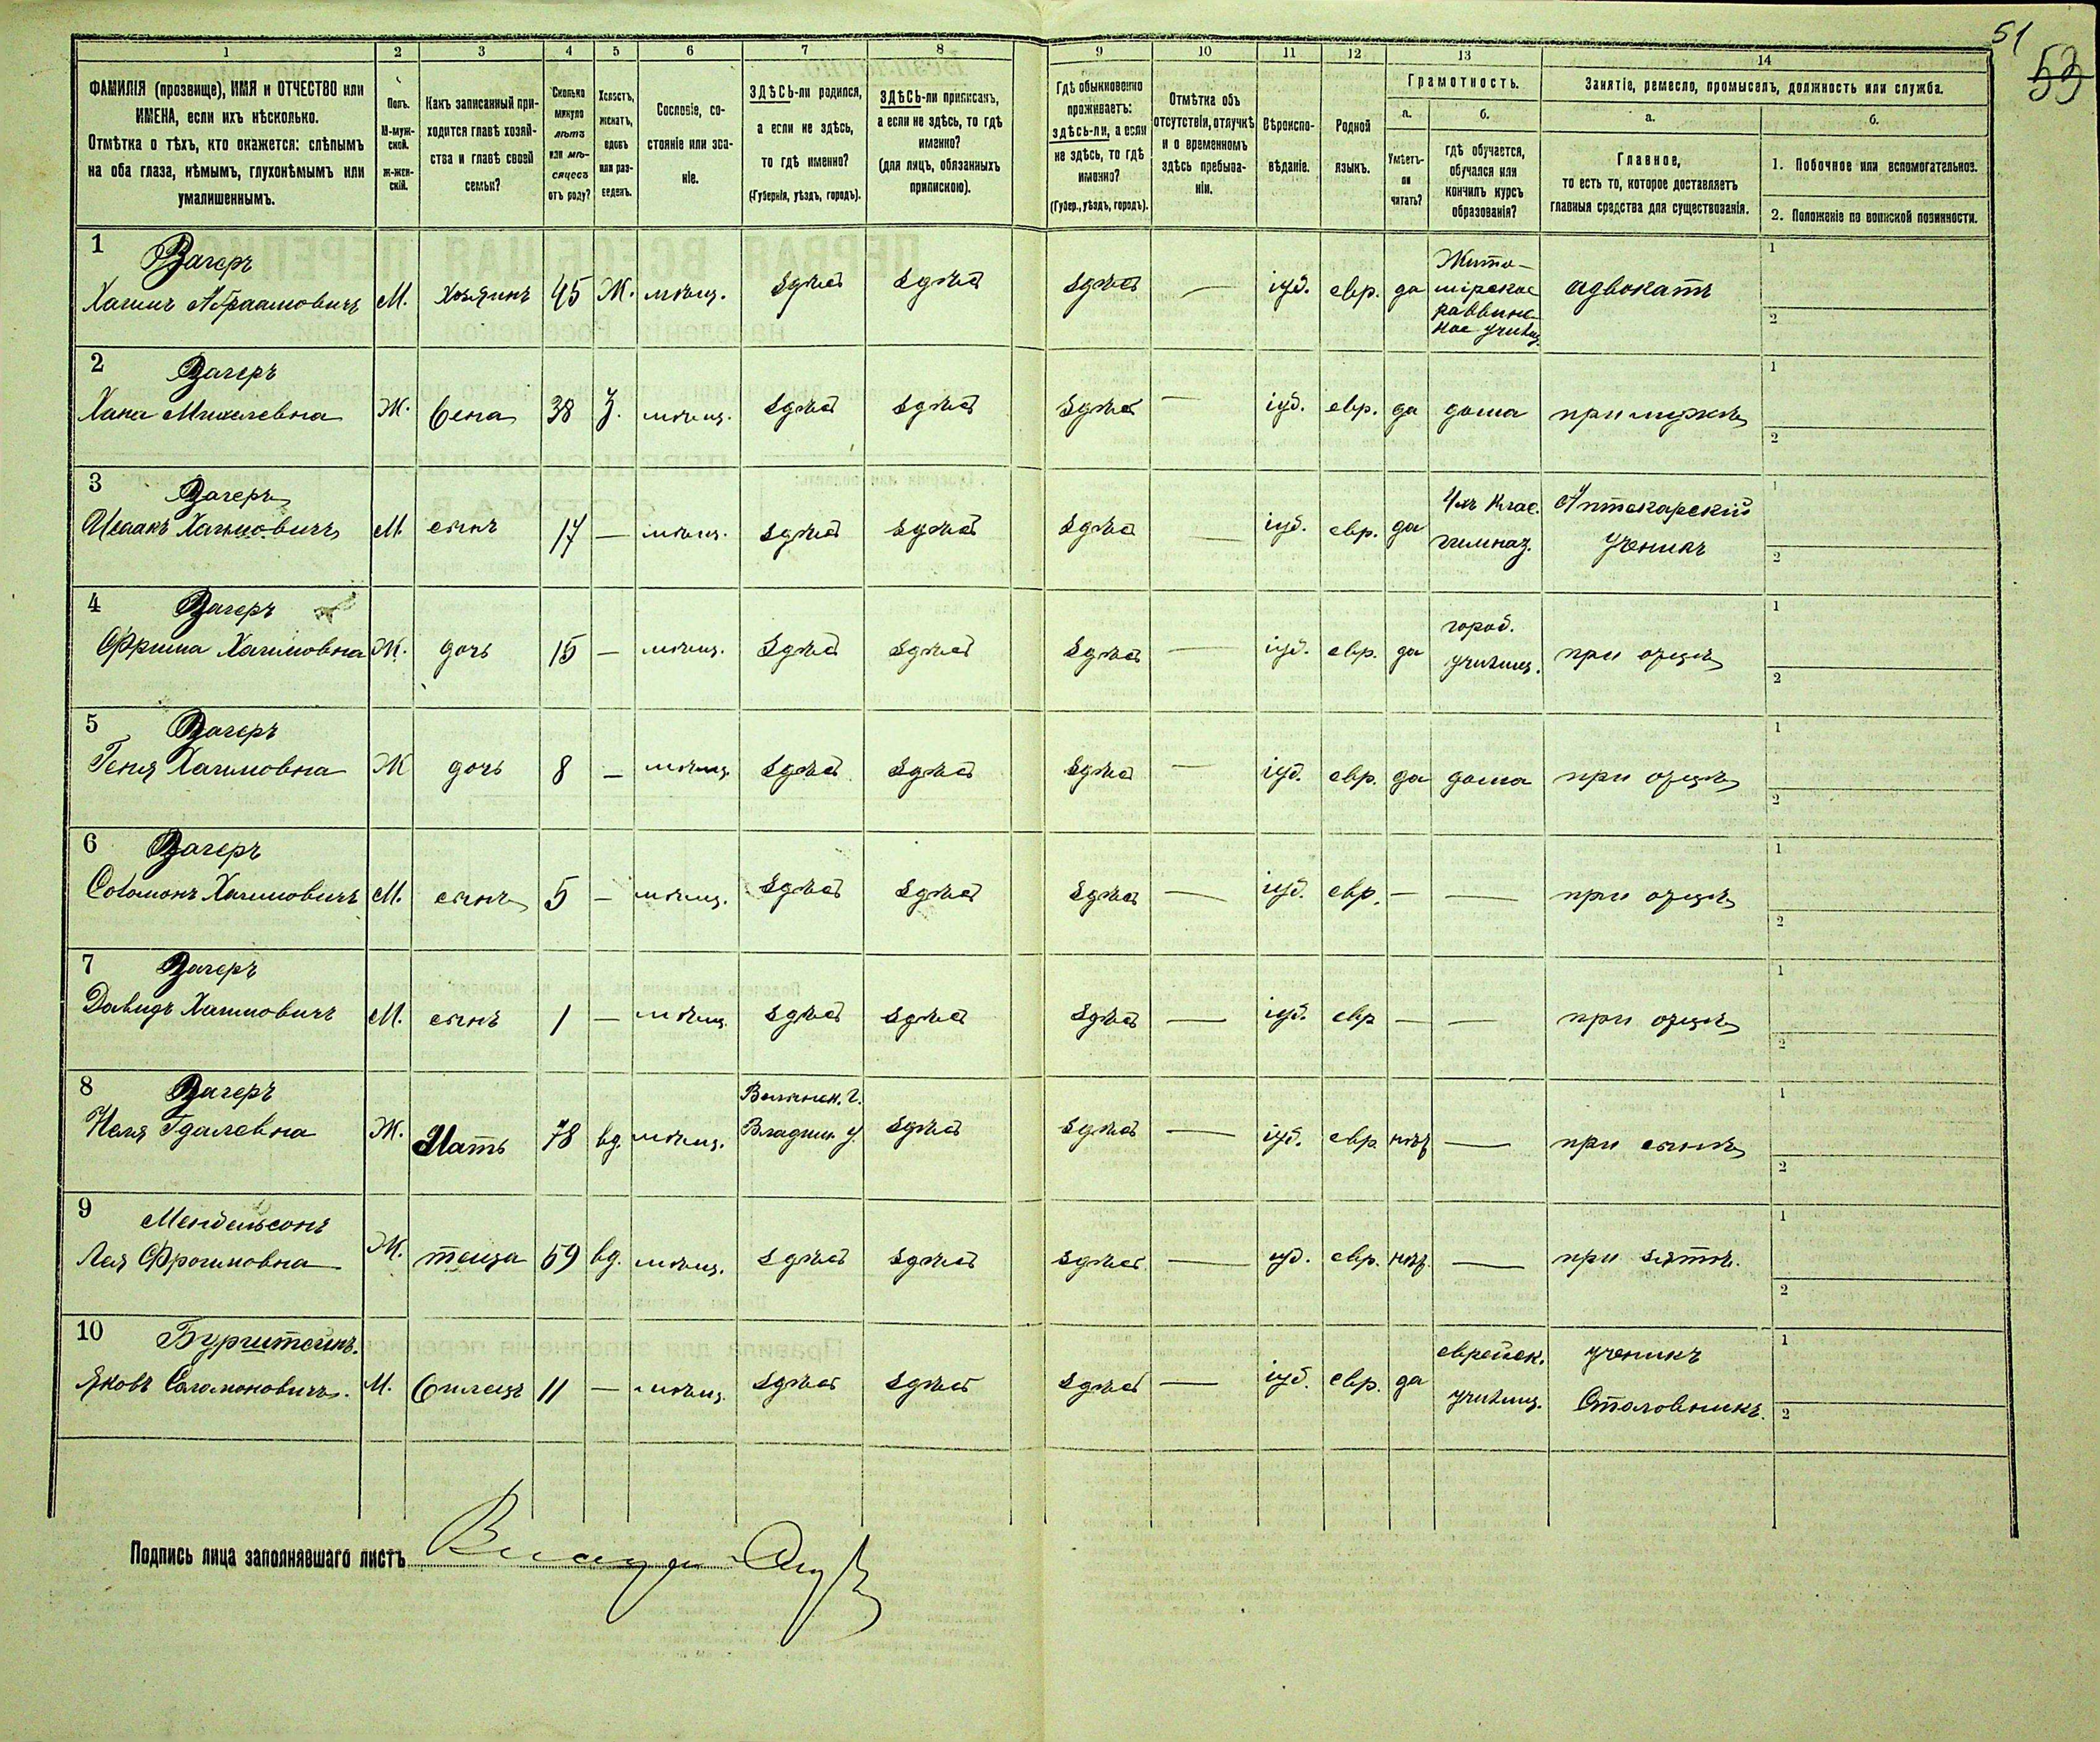 51
53
1 2 3 4 5 6 7 8 9 10 11 12 13 14
ФАМИЛІЯ (прозвище), ИМЯ и ОТЧЕСТВО или ИМЕНА, если ихъ нѣсколько.
Отмѣтка о тѣхъ, кто окажется: слѣпымъ на оба глаза, нѣмымъ, глухонѣмымъ или умалишеннымъ.
Полъ. М-мужской. ж-женскій.
Какъ записанный приходится главѣ хозяйства и главѣ своей семьи?
Сколько минуло лѣтъ или мѣсяцевъ отъ роду?
Холостъ, женатъ, вдовъ или разведенъ.
Сословіе, состояніе или званіе.
ЗДѢСЬ-ли родился, а если не здѣсь, то гдѣ именно?
(Губернія, уѣздъ, городъ).
ЗДѢСЬ-ли приписанъ, а если не здѣсь, то гдѣ именно?
(для лицъ, обязанныхъ припискою).
Гдѣ обыкновенно проживаетъ: здѣсь-ли, а если не здѣсь, то гдѣ именно?
(Губер., уѣздъ, городъ).
Отмѣтка объ отсутствіи, отлучкѣ и о временномъ здѣсь пребываніи.
Вѣроисповѣданіе.
Родной языкъ.
Грамотность.
а.
Умѣетъ-ли читать?
б.
гдѣ обучается, обучался или кончилъ курсъ образованія?
Занятіе, ремесло, промыселъ, должность или служба.
а.
Главное,
то есть то, которое доставляетъ главныя средства для существованія.
б.
1. Побочное или вспомогательное.
2. Положеніе по воинской повинности.
1 Вагеръ
Хаимъ Абраамовичъ М. Хозяинъ 45 Ж. мѣщ. здѣсь здѣсь здѣсь — іуд. евр. да Жито-
мірское
раввин-
ное училищ. адвокатъ 1 2
2 Вагеръ
Хана Михелевна Ж. жена 38 З. мѣщ. здѣсь здѣсь здѣсь — іуд. евр. да дома при мужѣ 1 2
3 Вагеръ
Исаакъ Хаимовичъ М. сынъ 17 — мѣщ. здѣсь здѣсь здѣсь — іуд. евр. да 4хъ клас.
гимназ. Аптекарскій
ученикъ 1 2
4 Вагеръ
Фрима Хаимовна Ж. дочь 15 — мѣщ. здѣсь здѣсь здѣсь — іуд. евр. да город.
училищ. при отцѣ 1 2
5 Вагеръ
Геня Хаимовна Ж дочь 8 — мѣщ. здѣсь здѣсь здѣсь — іуд. евр. да дома при отцѣ 1 2
6 Вагеръ
Соломонъ Хаимовичъ М. сынъ 5 — мѣщ. здѣсь здѣсь здѣсь — іуд. евр. — — при отцѣ 1 2
7 Вагеръ
Давидъ Хаимовичъ М. сынъ 1 — мѣщ. здѣсь здѣсь здѣсь — іуд. евр — — при отцѣ 1 2
8 Вагеръ
Неля Гдалевна Ж. Мать 78 вд. мѣщ. Волынск. г.
Владим. у. здѣсь здѣсь — іуд. евр. нѣт — при сынѣ 1 2
9 Мендельсонъ
Лея Фроимовна Ж. теща 59 вд. мѣщ. здѣсь здѣсь здѣсь — іуд. евр. нѣт. — при зятѣ. 1 2
10 Бурштейнъ.
Яковъ Соломоновичъ. М. жилецъ 11 — мѣщ. здѣсь здѣсь здѣсь — іуд. евр. да еврейск.
училищ. ученикъ
Столовникъ. 1 2
Подпись лица заполнявшаго листъ